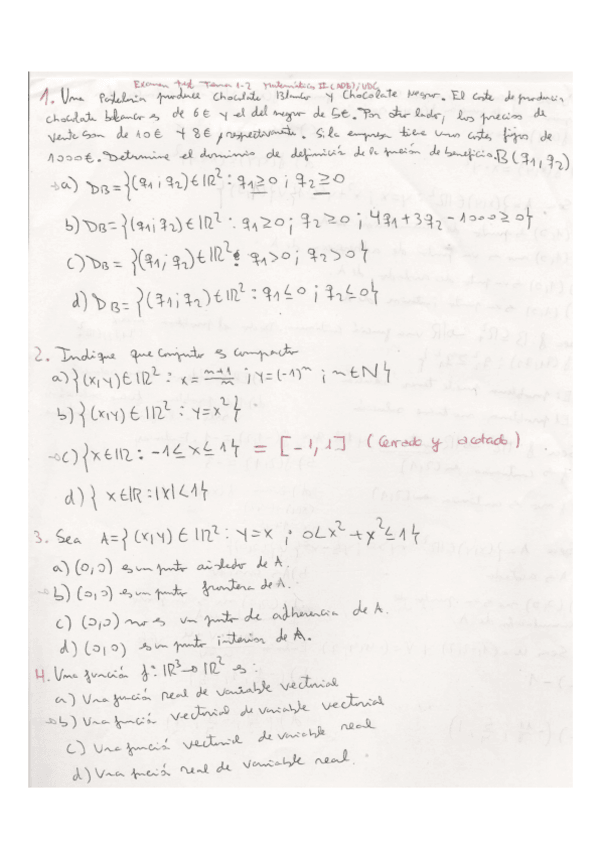 Examen tipo Temas 1-2 Matemáticas II (ADE)/UDC
1. Una Pastelería produce Chocolate Blanco y Chocolate Negro. El coste de producir
chocolate blanco es de 6€ y el del negro de 5€. Por otro lado, los precios de
venta son de 10€ y 8€, respectivamente. Si la empresa tiene unos costes fijos de
1000€. Determine el dominio de definición de la función de beneficio. B(q1,q2)
→a) DB = {(q1;q2) ∈ IR² : q1≥0 ; q2≥0
b) DB = {(q1;q2) ∈ IR² : q1≥0 ; q2≥0 ; 4q1+3q2-1000≥0}
c) DB = {(q1;q2) ∈ IR² : q1>0 ; q2>0}
d) DB = {(q1;q2) ∈ IR² : q1≤0 ; q2≤0}
2. Indique que conjunto es compacto
a) {(x,y) ∈ IR² : x = (n+1)/n ; y=(-1)ⁿ ; n∈N}
b) {(x,y) ∈ IR² : y=x²}
→c) {x∈IR : -1≤x≤1} = [-1,1] (Cerrado y acotado)
d) { x∈IR : |x|<1}
3. Sea A={(x,y) ∈ IR² : y=x ; 0<x²+x²≤1}
a) (0,0) es un punto aislado de A.
→b) (0,0) es un punto frontera de A.
c) (0,0) no es un punto de adherencia de A.
d) (0,0) es un punto interior de A.
4. Una función f: IR³→IR² es:
a) Una función real de variable vectorial
→b) Una función vectorial de variable vectorial
c) Una función vectorial de variable real
d) Una función real de variable real.